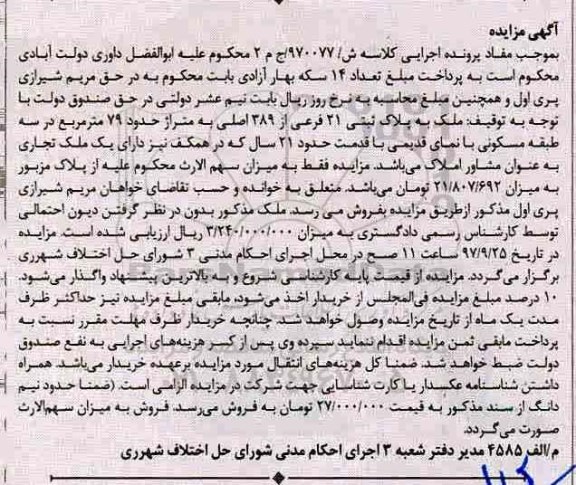 آگهی مزایده
بموجب مفاد پرونده اجرایی کلاسه ش/ ۹۷۰۰۷۷/ج م ۲ محکوم علیه ابوالفضل داوری دولت آبادی
محکوم است به پرداخت مبلغ تعداد ۱۴ سکه بهار آزادی بابت محکوم به در حق مریم شیرازی
پری اول و همچنین مبلغ محاسبه به نرخ روز ریال بابت نیم عشر دولتی در حق صندوق دولت با
توجه به توقیف: ملک به پلاک ثبتی ۲۱ فرعی از ۳۸۹ اصلی به متراژ حدود ۷۹ مترمربع در سه
طبقه مسکونی با نمای قدیمی با قدمت حدود ۲۱ سال که در همکف نیز دارای یک ملک تجاری
به عنوان مشاور املاک می‌باشد. مزایده فقط به میزان سهم الارث محکوم علیه از پلاک مزبور
به میزان ۲۱/۸۰۷/۶۹۲ تومان می‌باشد. متعلق به خوانده و حسب تقاضای خواهان مریم شیرازی
پری اول مذکور ازطریق مزایده بفروش می رسد. ملک مذکور بدون در نظر گرفتن دیون احتمالی
توسط کارشناس رسمی دادگستری به میزان ۳/۲۴۰/۰۰۰/۰۰۰ ریال ارزیابی شده است. مزایده
در تاریخ ۹۷/۹/۲۵ ساعت ۱۱ صبح در محل اجرای احکام مدنی ۳ شورای حل اختلاف شهرری
برگزار می‌گردد. مزایده از قیمت پایه کارشناسی شروع و به بالاترین پیشنهاد واگذار می‌شود.
۱۰ درصد مبلغ مزایده فی‌المجلس از خریدار اخذ می‌شود، مابقی مبلغ مزایده نیز حداکثر ظرف
مدت یک ماه از تاریخ مزایده وصول خواهد شد. چنانچه خریدار ظرف مهلت مقرر نسبت به
پرداخت مابقی ثمن مزایده اقدام ننماید سپرده وی پس از کسر هزینه‌های اجرایی به نفع صندوق
دولت ضبط خواهد شد. ضمنا کل هزینه‌های انتقال مورد مزایده برعهده خریدار می‌باشد. همراه
داشتن شناسنامه عکسدار یا کارت شناسایی جهت شرکت در مزایده الزامی است. (ضمنا حدود نیم
دانگ از سند مذکور به قیمت ۲۷/۰۰۰/۰۰۰ تومان به فروش می‌رسد. فروش به میزان سهم‌الارث
صورت می‌گردد.
م/الف ۴۵۸۵ مدیر دفتر شعبه ۳ اجرای احکام مدنی شورای حل اختلاف شهرری